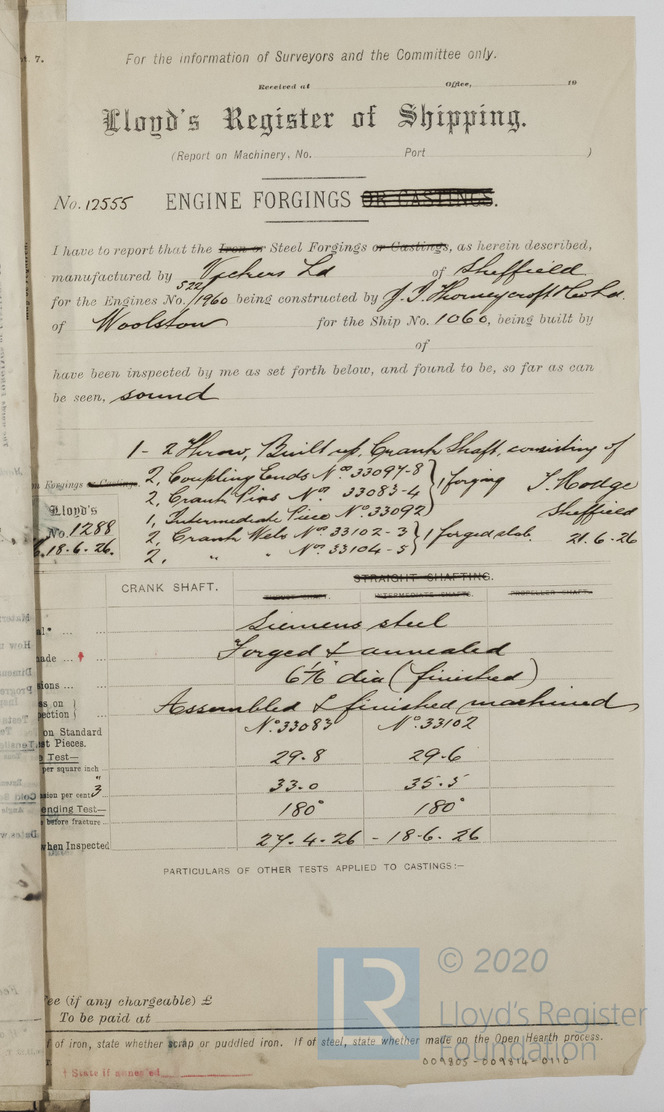 t. 7.
For the information of Surveyors and the Committee only.
Received at Office, 19
Lloyd's Register of Shipping.
(Report on Machinery, No. Port )
No. 12555 ENGINE FORGINGS OR CASTINGS.
I have to report that the Iron or Steel Forgings or Castings, as herein described,
manufactured by Vickers Ld of Sheffield
522
for the Engines No. /1960 being constructed by J. I. Thorneycroft & Co Ld.
of Woolston for the Ship No. 1060, being built by
of
have been inspected by me as set forth below, and found to be, so far as can
be seen, sound
1 - 2 Throw, Built up, Crank Shaft, consisting of
2, Coupling Ends Nos 33097-8
n Forgings or Castings 2, Crank Pins Nos 33083-4 1 forging T. Hodge
Lloyd's 1, Intermediate Piece No. 33092 Sheffield
No. 1288 2, Crank Webs Nos 33102-3 1 forged slab. 21.6.26
18.6.26. 2, " " Nos 33104-5
CRANK SHAFT. STRAIGHT SHAFTING.
THRUST SHAFT. INTERMEDIATE SHAFTS. PROPELLER SHAFT.
al* ... Siemens steel
made ... † Forged & annealed
sions ... 6 1/16 dia (finished)
s on
pection Assembled & finished machined
on Standard No. 33083 No. 33102
st Pieces.
e Test—
per square inch 29.8 29.6
sion per cent 3" 33.0 35.5
ending Test— 180° 180°
before fracture
when Inspected 27.4.26 - 18.6.26
PARTICULARS OF OTHER TESTS APPLIED TO CASTINGS:—
ee (if any chargeable) £
To be paid at
f of iron, state whether scrap or puddled iron. If of steel, state whether made on the Open Hearth process.
r.
† State if annealed
009805-009814-0110
LR © 2020
Lloyd's Register
Foundation